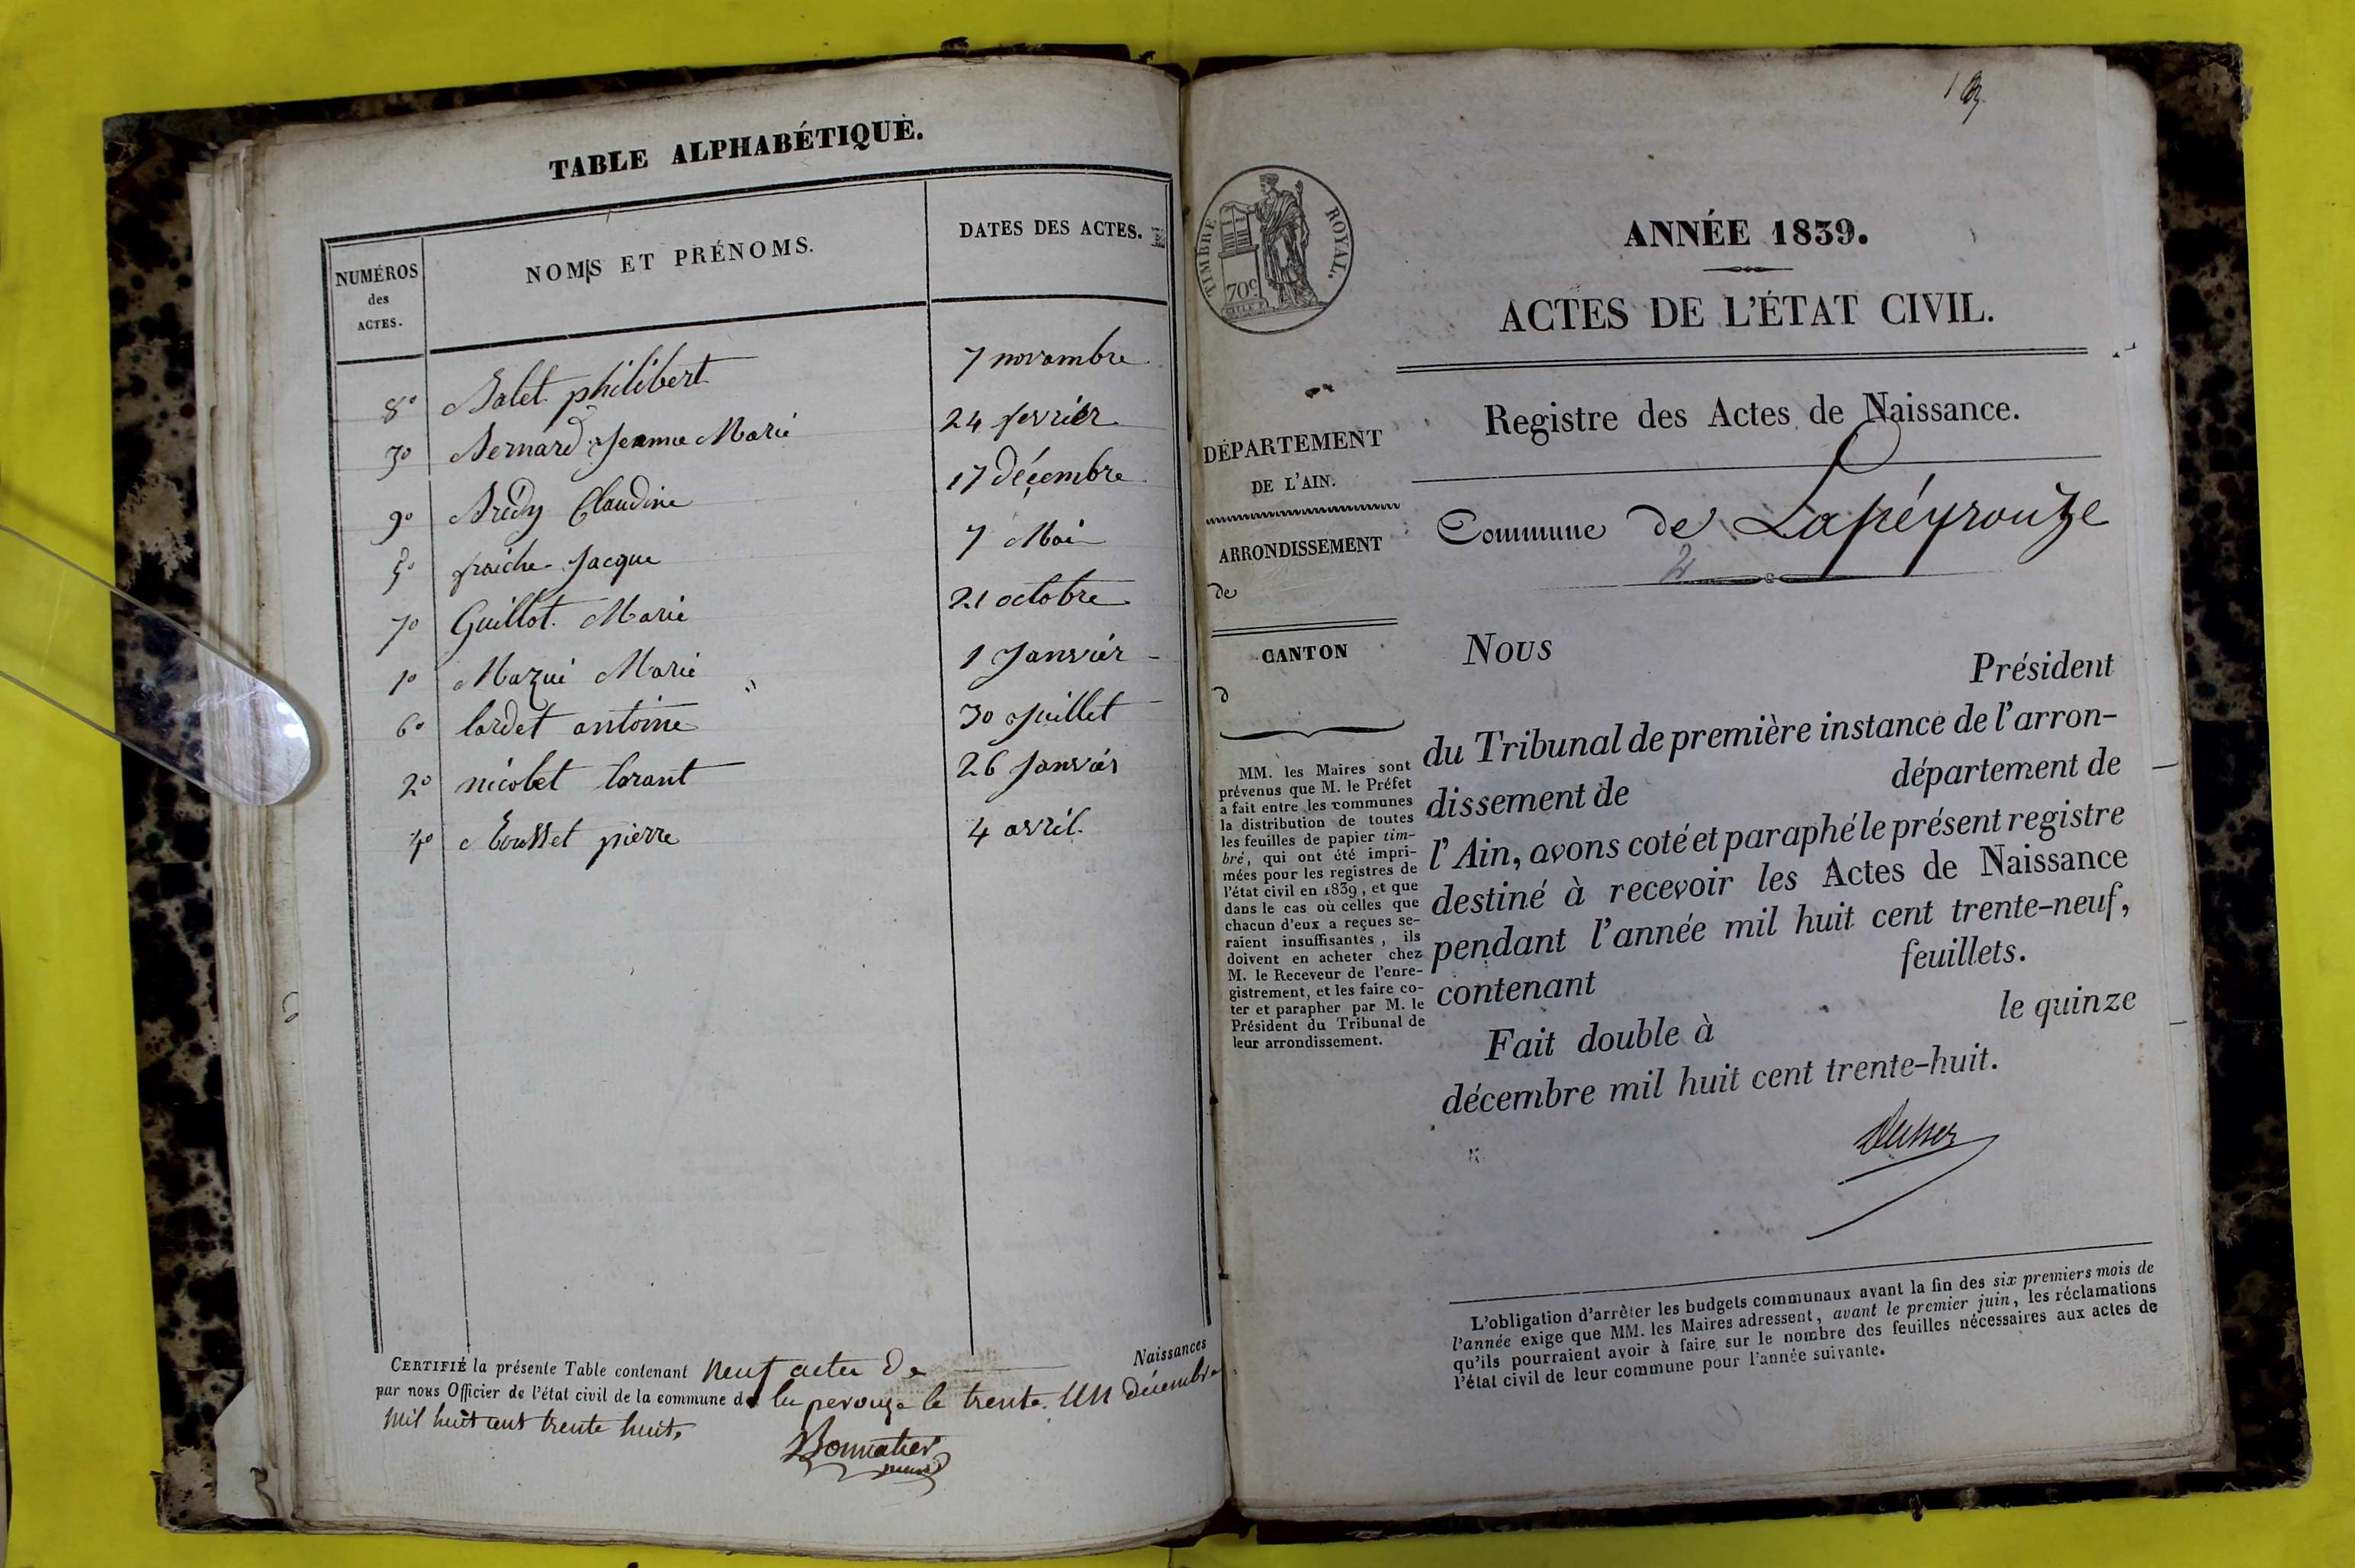 TABLE ALPHABÉTIQUE.
NUMÉROS des ACTES.
NOMS ET PRÉNOMS.
DATES DES ACTES.
8° Balet philibert 7 novembre
3° Bernard Jeanne Marie 24 fevrier
9° Brédy Claudine 17 décembre
5° fraiche Jacque 7 Mai
7° Guillot Marie 21 octobre
1° Mazui Marie 1 Janvier
6° lardet antoine 30 Juillet
2° nicolet larant 26 Janvier
4° Rousset pierre 4 avril
CERTIFIÉ la présente Table contenant neuf actes de Naissances
par nous Officier de l'état civil de la commune de la perouze le trente un décembre
mil huit cent trente huit.
Bonnatier
TIMBRE ROYAL.
70c
ANNÉE 1839.
ACTES DE L'ÉTAT CIVIL.
Registre des Actes de Naissance.
Commune de Lapéyrouze
DÉPARTEMENT
DE L'AIN.
ARRONDISSEMENT
de
CANTON
d
MM. les Maires sont
prévenus que M. le Préfet
a fait entre les communes
la distribution de toutes
les feuilles de papier tim-
bré, qui ont été impri-
mées pour les registres de
l'état civil en 1839, et que
dans le cas où celles que
chacun d'eux a reçues se-
raient insuffisantes, ils
doivent en acheter chez
M. le Receveur de l'enre-
gistrement, et les faire co-
ter et parapher par M. le
Président du Tribunal de
leur arrondissement.
Nous Président
du Tribunal de première instance de l'arron-
dissement de département de
l'Ain, avons coté et paraphé le présent registre
destiné à recevoir les Actes de Naissance
pendant l'année mil huit cent trente-neuf,
contenant feuillets.
Fait double à le quinze
décembre mil huit cent trente-huit.
L'obligation d'arrêter les budgets communaux avant la fin des six premiers mois de
l'année exige que MM. les Maires adressent, avant le premier juin, les réclamations
qu'ils pourraient avoir à faire sur le nombre des feuilles nécessaires aux actes de
l'état civil de leur commune pour l'année suivante.